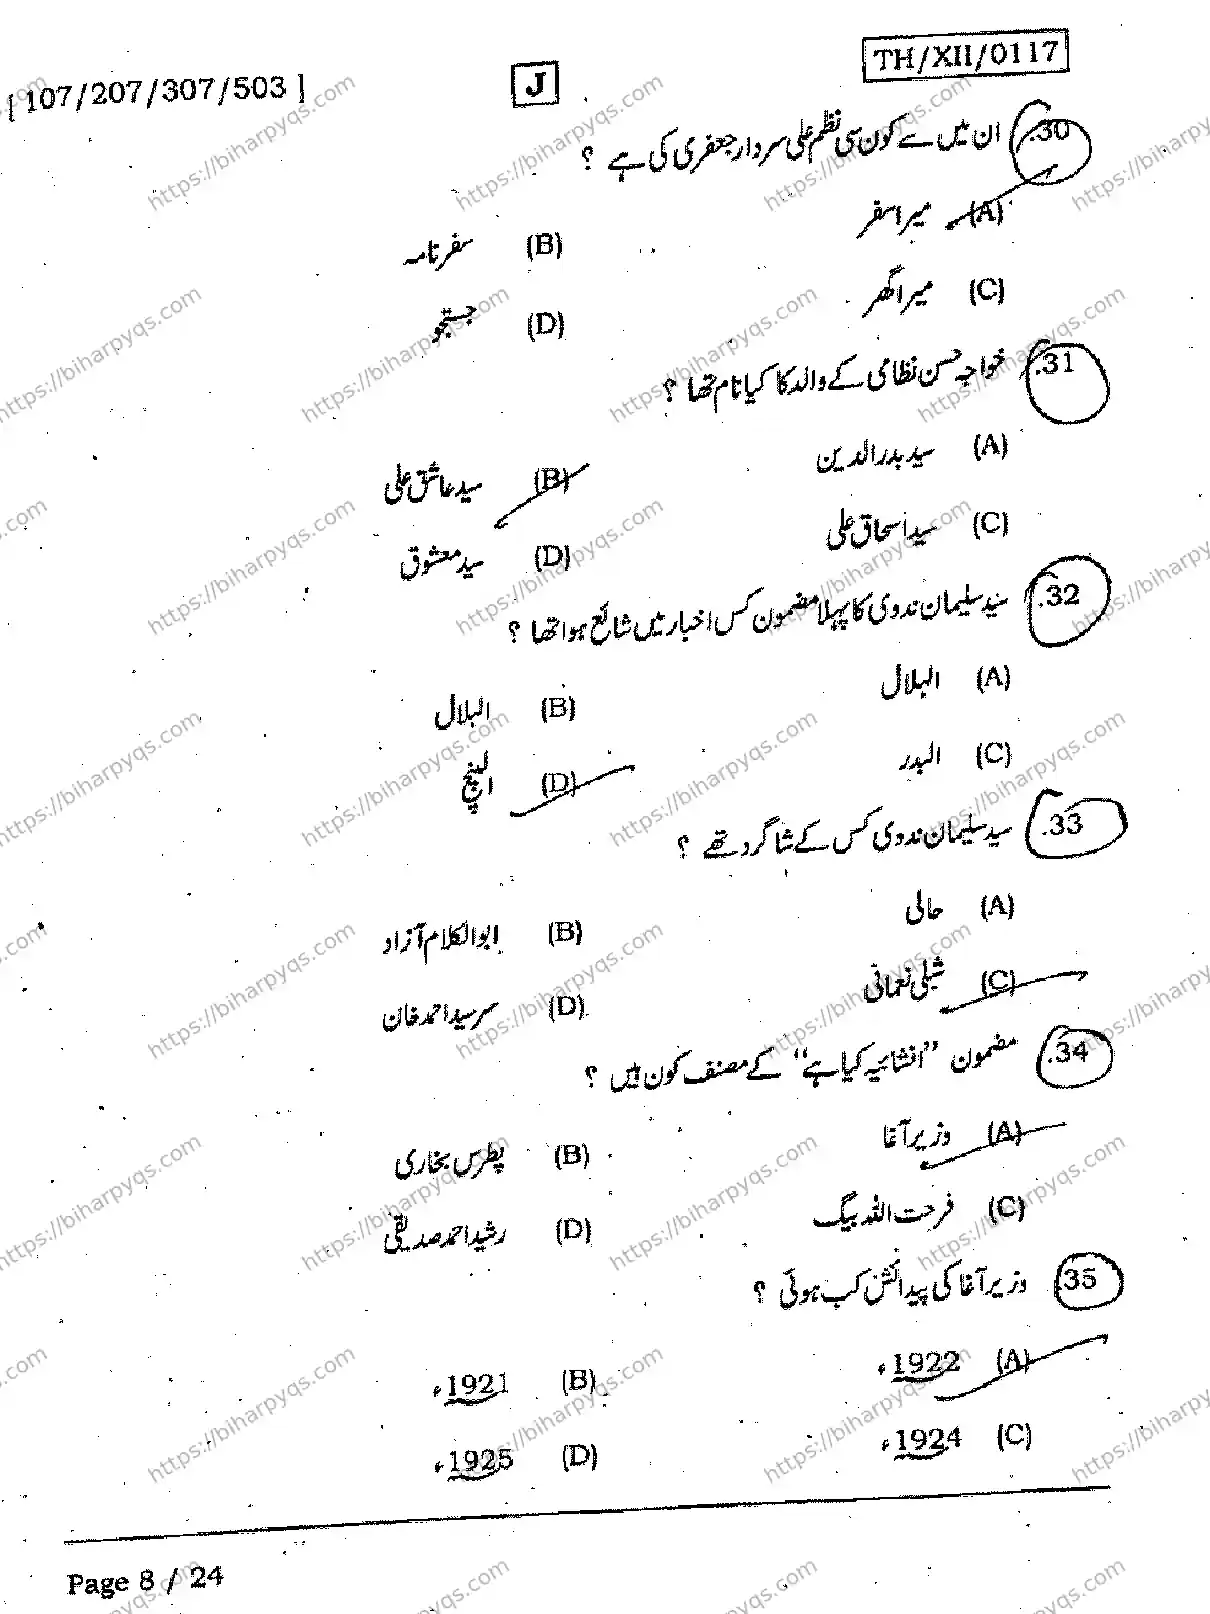 [ 107/207/307/503 ]
J
TH/XII/0117
30. ان میں سے کون سی نظم علی سردار جعفری کی ہے ؟
(A) میرا سفر
(B) سفرنامہ
(C) میرا گھر
(D) جستجو
31. خواجہ حسن نظامی کے والد کا کیا نام تھا ؟
(A) سید بدرالدین
(B) سید عاشق علی
(C) سید اسحاق علی
(D) سید معشوق
32. سید سلیمان ندوی کا پہلا مضمون کس اخبار میں شائع ہوا تھا ؟
(A) الہلال
(B) البلال
(C) البدر
(D) الپنچ
33. سید سلیمان ندوی کس کے شاگرد تھے ؟
(A) حالی
(B) ابوالکلام آزاد
(C) شبلی نعمانی
(D) سرسید احمد خان
34. مضمون ”انشائیہ کیا ہے“ کے مصنف کون ہیں ؟
(A) وزیر آغا
(B) پطرس بخاری
(C) فرحت اللہ بیگ
(D) رشید احمد صدیقی
35. وزیر آغا کی پیدائش کب ہوئی ؟
(A) 1922ء
(B) 1921ء
(C) 1924ء
(D) 1925ء
Page 8 / 24
https://biharpyqs.com